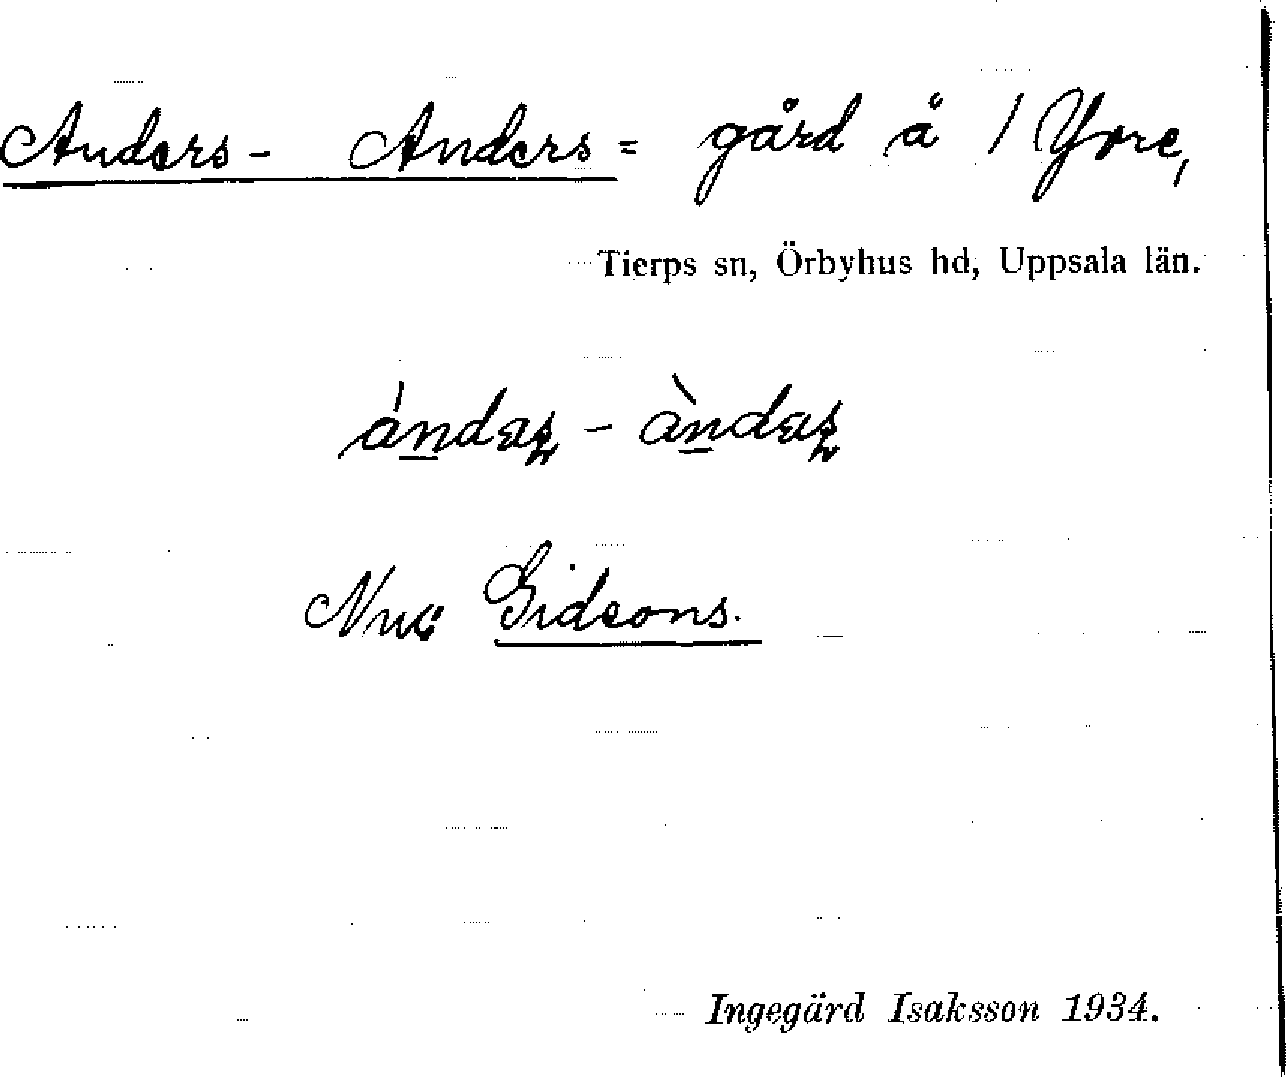 Anders- Anders = gård å 1 Yvre,
Tierps sn, Örbyhus hd, Uppsala län.
Nu: Gideons.
Ingegärd Isaksson 1934.